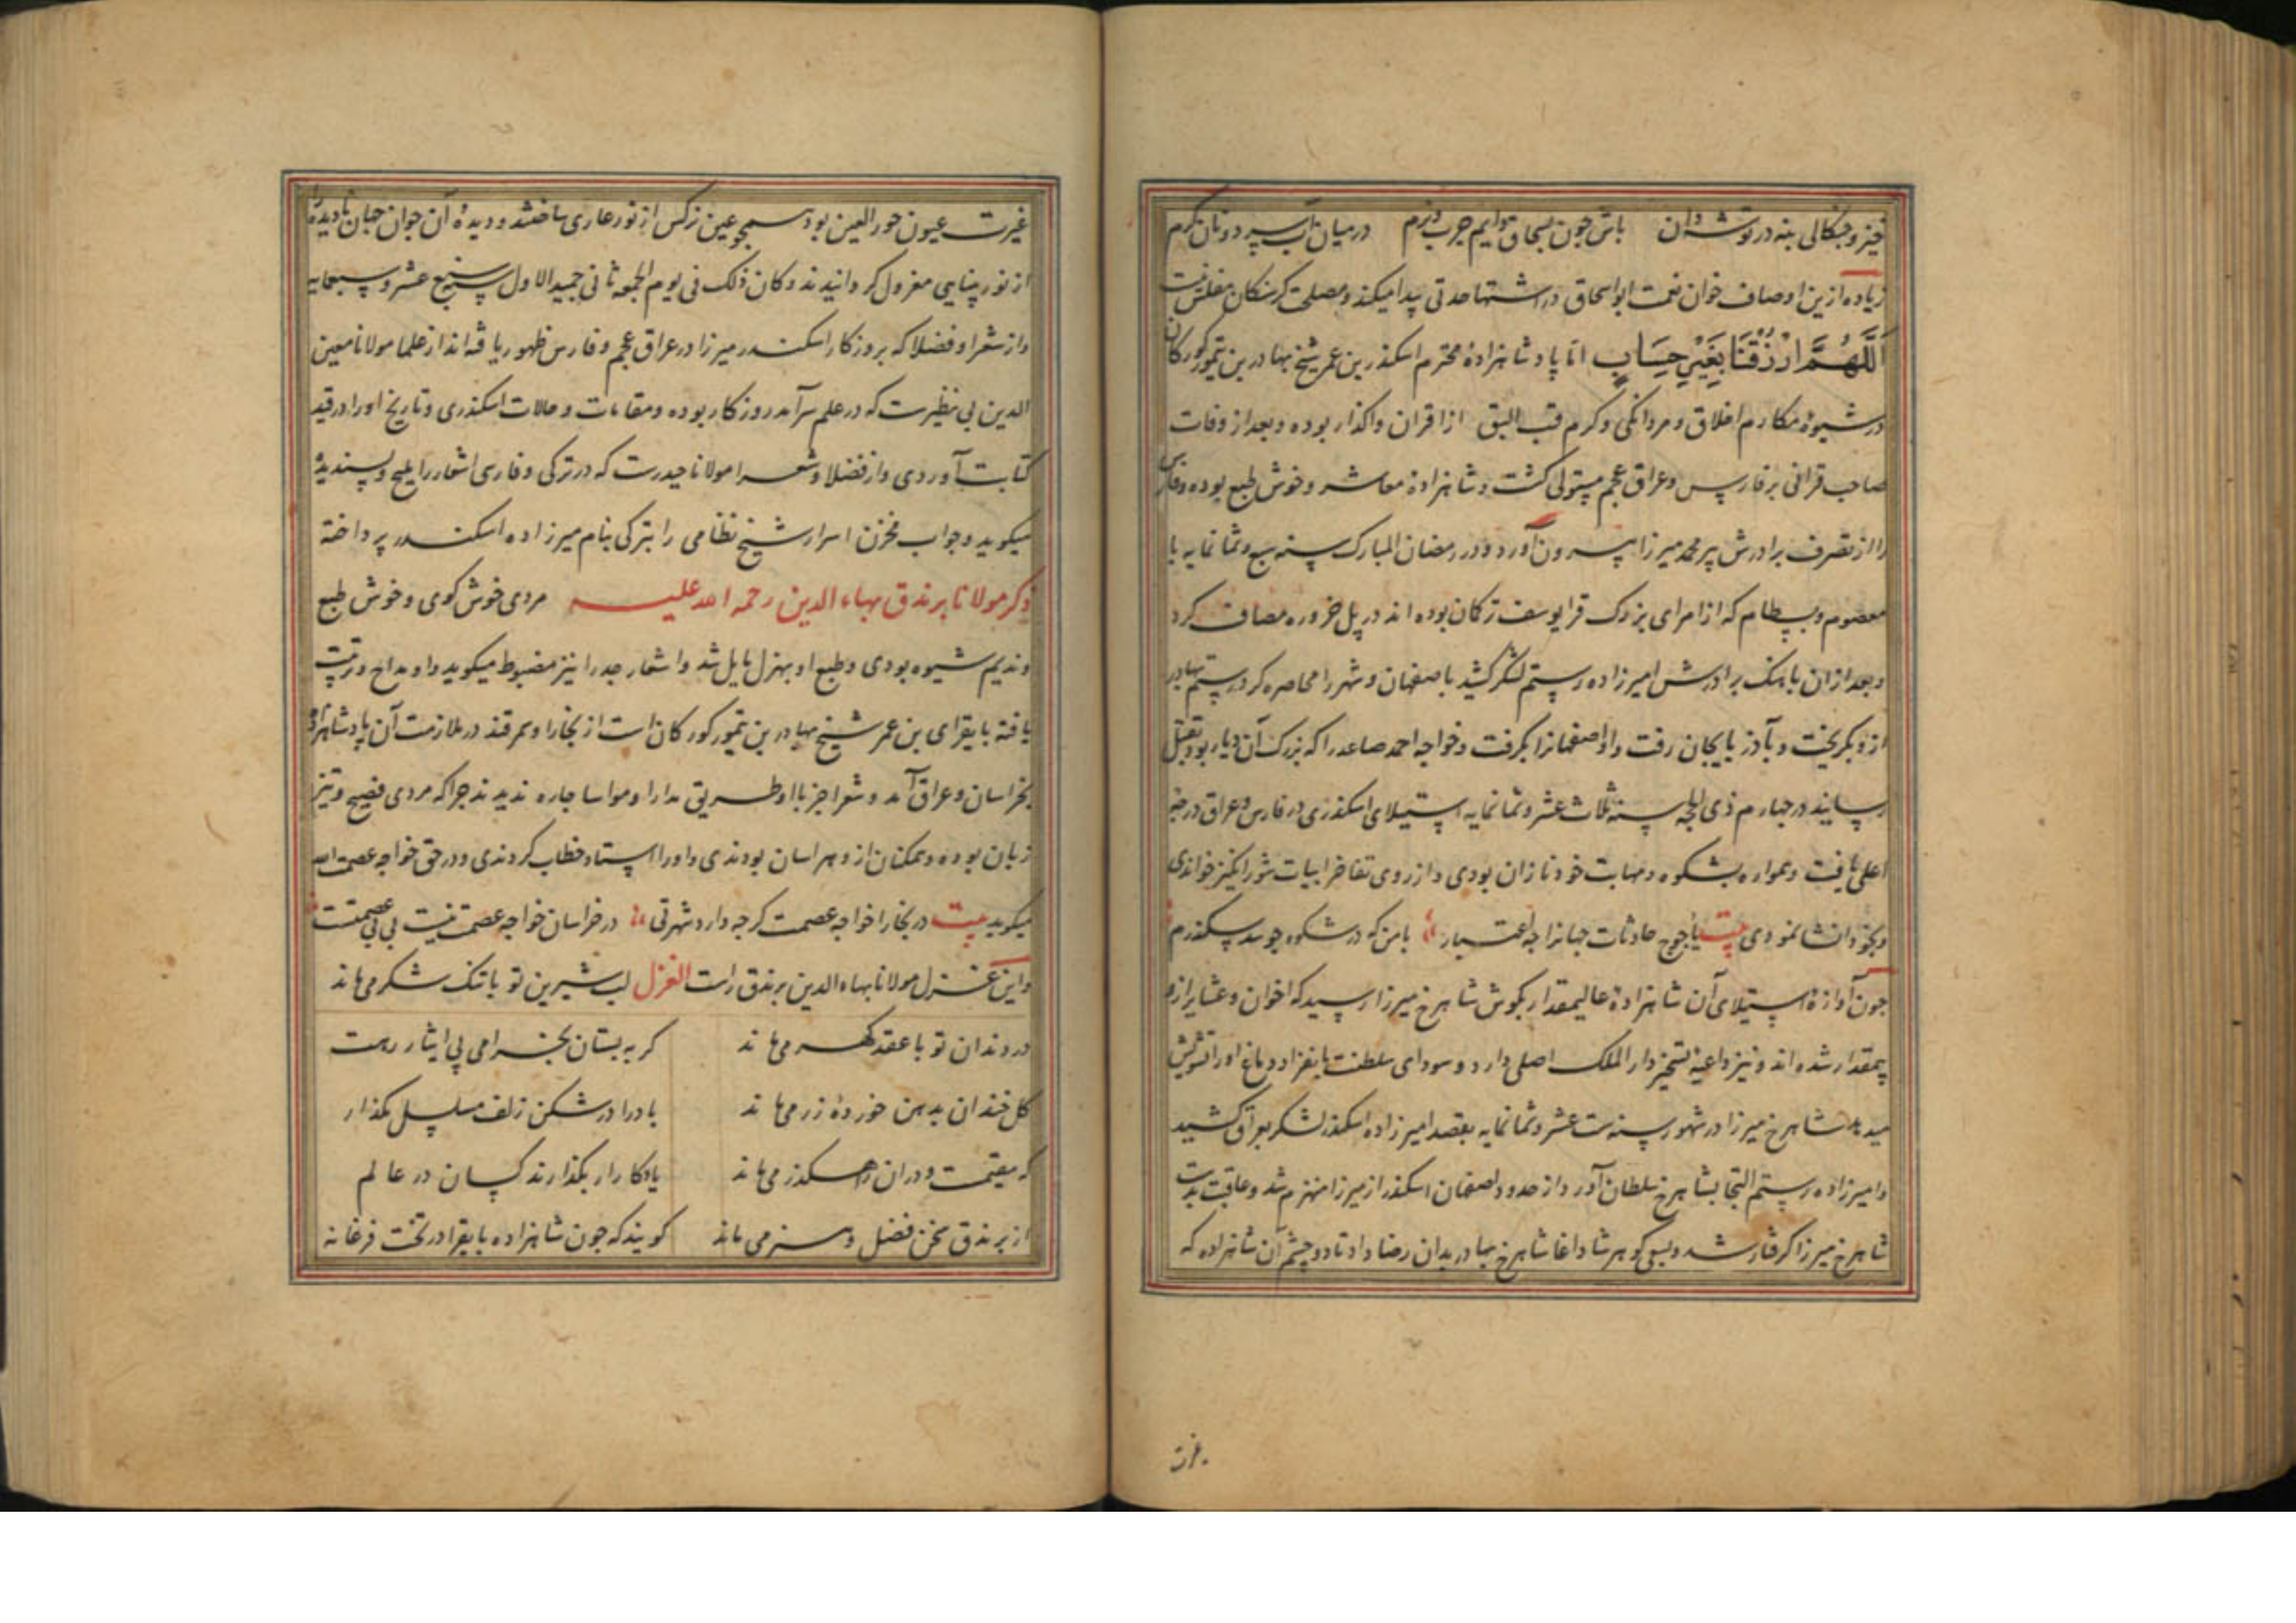 خیز و جنکالی بنه در توشه دان باش جون بسحاق دایم جرب و نرم در میان آب سرد و نان کرم
زیاده ازین اوصاف خوان نعمت ابو اسحاق در اشتها حدتی پیدا میکند و مصلحت کرسنکان مفلس نیست
اَللَّهُمَّ ارْزُقْنَا بِغَیْرِ حِسَابٍ اما پادشاهزادهٔ محترم اسکندر بن عمر شیخ بهادر بن تیمور کورکان
در شیوهٔ مکارم اخلاق و مردانکی و کرم قصب السبق از اقران واکذار بوده و بعد از وفات
صاحب قرانی بر فارس و عراق عجم مستولی کشت و شاهزادهٔ معاشر و خوش طبع بوده و فارس
را از تصرف برادرش پیر محمد میرزا بیرون آورد و در رمضان المبارک سنه سبع و ثمانمایه با
معصوم و بسطام که از امرای بزرک قرا یوسف ترکان بوده اند در پل خروره مصاف کرد
و بعد ازان باهنک برادرش امیرزاده رستم لشکر کشید باصفهان و شهر را محاصره کرد رستم بهادر
ازو بکریخت و بآذربایجان رفت و او اصفهانرا بکرفت و خواجه احمد صاعد را که بزرک آن دیار بود بقتل
رسانید در جهارم ذی الحجه سنه ثلاث عشر و ثمانمایه استیلای اسکندری در فارس و عراق درجهٔ
اعلی یافت و همواره بشکوه و مهابت خود نازان بودی و از روی تفاخر ابیات شورانکیز خواندی
و بخود انشا نمودی بیت یأجوج حادثات جهانرا جه اعتبار با من که در شکوه جو سد سکندرم
جون آوازهٔ استیلای آن شاهزادهٔ عالیمقدار بکوش شاهرخ میرزا رسید که اخوان و عشایر ازو
بیمقدار شده اند و نیز داعیهٔ تسخیر دار الملک اصلی دارد و سودای سلطنت بانفراد دماغ او را تشویش
میدهد شاهرخ میرزا در شهور سنه ست عشر و ثمانمایه بقصد امیرزاده اسکندر لشکر بعراق کشید
و امیرزاده رستم التجا بشاهرخ سلطان آورد از حدود اصفهان اسکندر از میرزا منهزم شد و عاقبت بدست
شاهرخ میرزا کرفتار شد و بسعی کوهر شاد آغا شاهرخ بهادر بدان رضا داد تا دو چشم آن شاهزاده که
غیرت
غیرت عیون حور العین بود همچو عین نرکس از نور عاری ساختند و دیدهٔ آن جوان جهان نادیده را
از نور بینایی معزول کردانیدند و کان ذلک فی یوم الجمعه ثانی جمید الاول سنه سبع عشر و سبعمایه
و از شعرا و فضلا که بروزکار اسکندر میرزا در عراق عجم و فارس ظهور یافته اند از علما مولانا معین
الدین بی نظیرست که در علم سرآمد روزکار بوده و مقامات و حالات اسکندری و تاریخ او را در قید
کتابت آوردی و از فضلا و شعرا مولانا حیدرست که در ترکی و فارسی اشعار را ملیح و پسندیدهٔ
میکوید و جواب مخزن اسرار شیخ نظامی را بترکی بنام میرزاده اسکندر پرداخته
ذکر مولانا برندق بهاء الدین رحمه الله علیه مردی خوش کوی و خوش طبع
و ندیم شیوه بودی و طبع او بهزل مایل شد و اشعار جد را نیز مضبوط میکوید و او مداح و تربیت
یافته بایقرای بن عمر شیخ بهادر بن تیمور کورکان است از بخارا و سمرقند در ملازمت آن پادشاهزاده
بخراسان و عراق آمد و شعرا جز با او طریق مدارا و مواسا چاره ندیدند جراکه مردی فصیح و تیز
زبان بوده و همکنان ازو هراسان بودندی و او را استاد خطاب کردندی و در حق خواجه عصمت الله
میکوید بیت در بخارا خواجه عصمت کرجه دارد شهرتی در خراسان خواجه عصمت نیست بی بی عصمتست
و این غزل مولانا بهاء الدین برندق راست الغزل لب شیرین تو با تنک شکر می ماند
در دندان تو با عقد کهر می ماند کر به بستان بخرامی پی ایثار رهت
کل خندان بدهن خوردهٔ زر می ماند باد را در شکن زلف مسلسل مکذار
که مقیمست و دران راهکذر می ماند یادکاران بکذارند کسان در عالم
از برندق سخن فضل و هنر می ماند کویند که جون شاهزاده بایقرا در تخت فرغانه